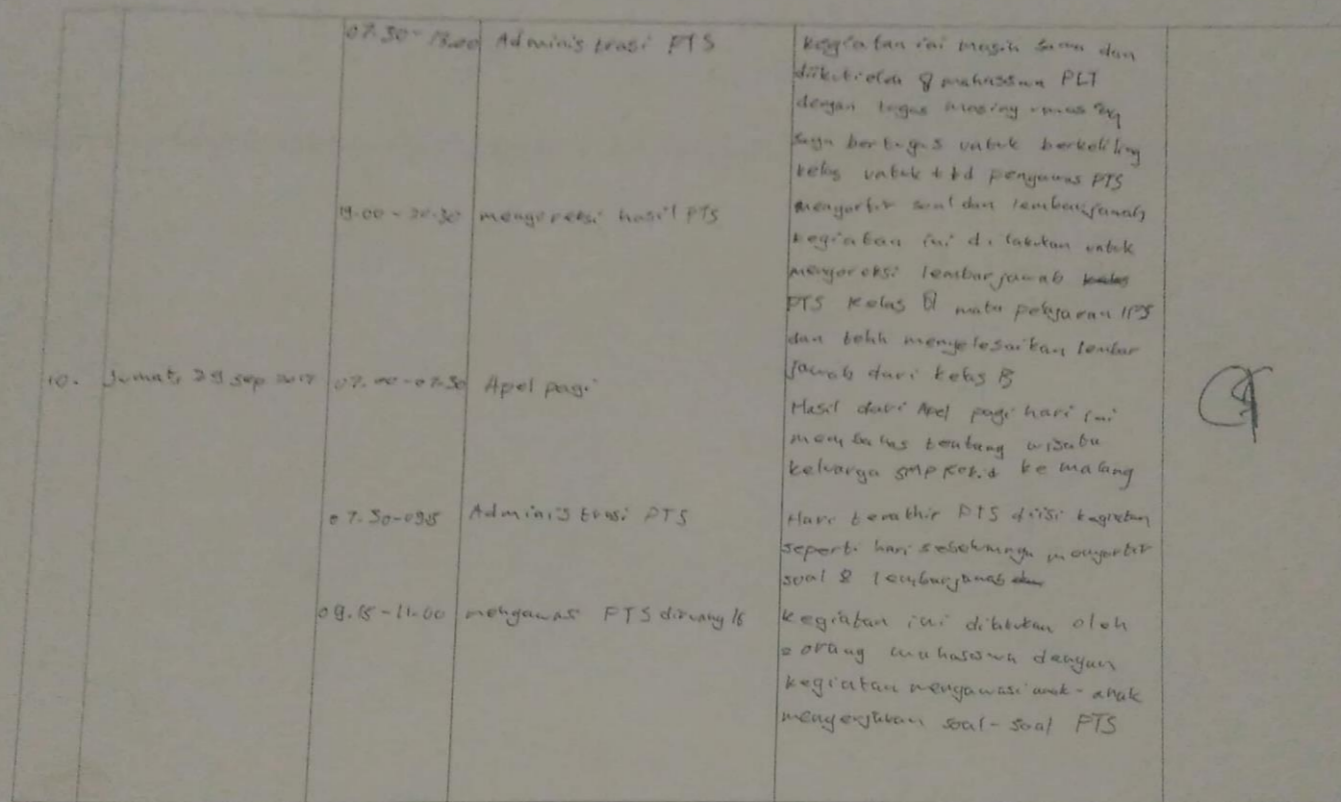 07.30-13.00 Administrasi PTS
kegiatan ini masih sama dan
diikuti oleh 8 mahasiswa PLT
dengan tugas masing-masing
saya bertugas untuk berkeliling
kelas untuk ttd pengawas PTS
mengortir soal dan lembar jawab
19.00-20.30 mengoreksi hasil PTS
kegiatan ini dilakukan untuk
mengoreksi lembar jawab
PTS kelas mata pelajaran IPS
dan telah menyelesaikan lembar
jawab dari kelas B
10. Jumat, 29 Sep 2017 07.00-07.30 Apel pagi
Hasil dari Apel pagi hari ini
membahas tentang wisata
keluarga SMP ke malang
07.30-09.15 Administrasi PTS
Hari terakhir PTS diisi kegiatan
seperti hari sebelumnya mengortir
soal & lembar jawab
09.15-11.00 mengawas PTS diruang 16
kegiatan ini dilakukan oleh
2 orang mahasiswa dengan
kegiatan mengawasi anak-anak
mengerjakan soal-soal PTS